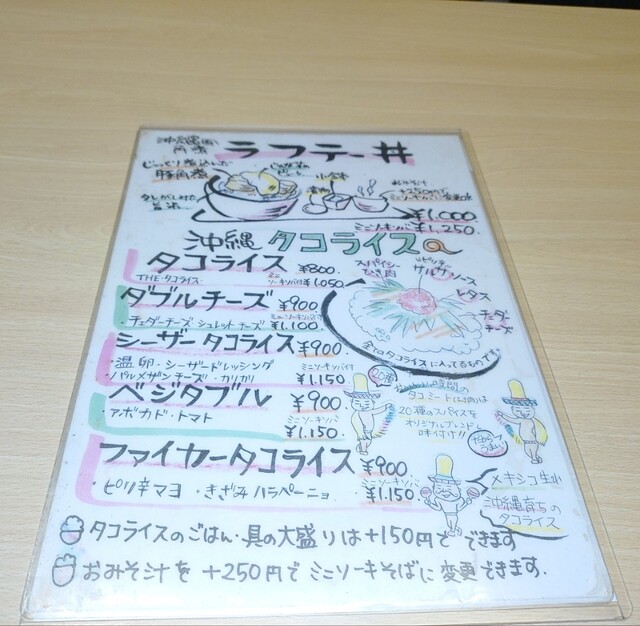 沖縄風
角煮
ラフテー丼
じっくり煮込んだ
豚角煮
小鉢
¥1,000
ミニソーキソバ ¥1,250
沖縄 タコライス
タコライス ¥800
THE・タコライス
ミニ
ソーキソバ付 ¥1,050
スパイシー
ひき肉
サルサソース
レタス
チェダー
チーズ
ダブルチーズ ¥900
・チェダーチーズ シュレットチーズ
¥1,100
シーザータコライス ¥900
・温卵・シーザードレッシング
・パルメザンチーズ・カリカリ
ミニソーキソバ付
¥1,150
全てのタコライスに入ってるものです
ベジタブル ¥900
・アボカド・トマト
ミニソーキソバ
¥1,150
タコミート(ひき肉)は
20種のスパイスを
オリジナルブレンド
味付け!!
だから
うまい
ファイヤータコライス ¥900
・ピリ辛マヨ ・きざみハラペーニョ
ミニソーキソバ
¥1,150
メキシコ生れ
沖縄育ちの
タコライス
タコライスのごはん・具の大盛りは+150円でできます
おみそ汁を +250円で ミニソーキそばに変更できます.